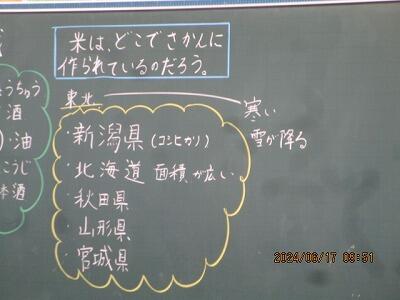 米は、どこでさかんに
作られているのだろう。
ょうちゅう
酒
油
こうじ
本酒
東北
寒い
雪が降る
・新潟県(コシヒカリ)
・北海道 面積が広い
・秋田県
・山形県
・宮城県
2024/06/17 09:51